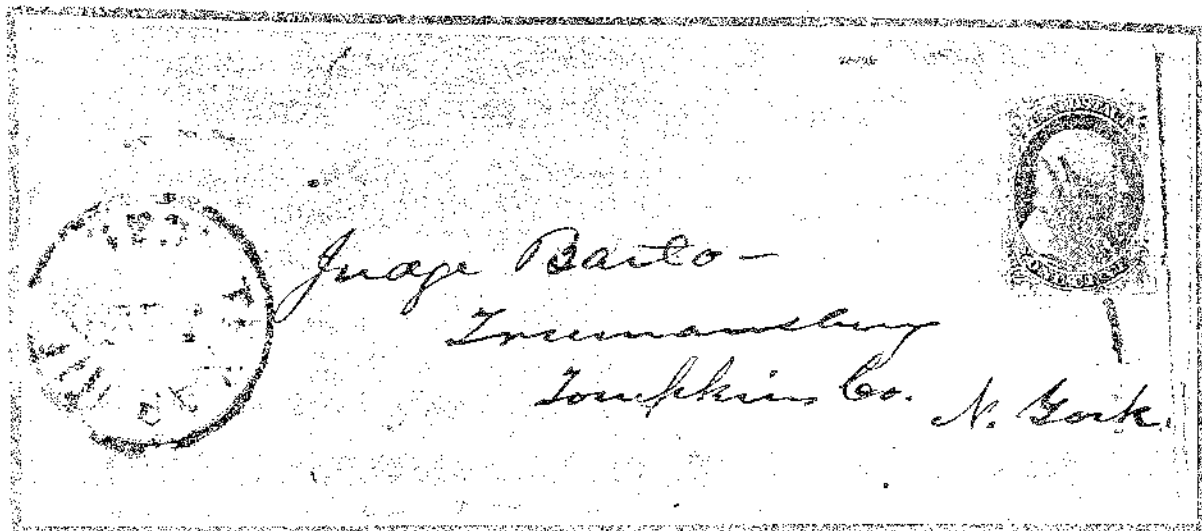 Judge Barto -
Trumansburg
Tompkins Co. N. York.